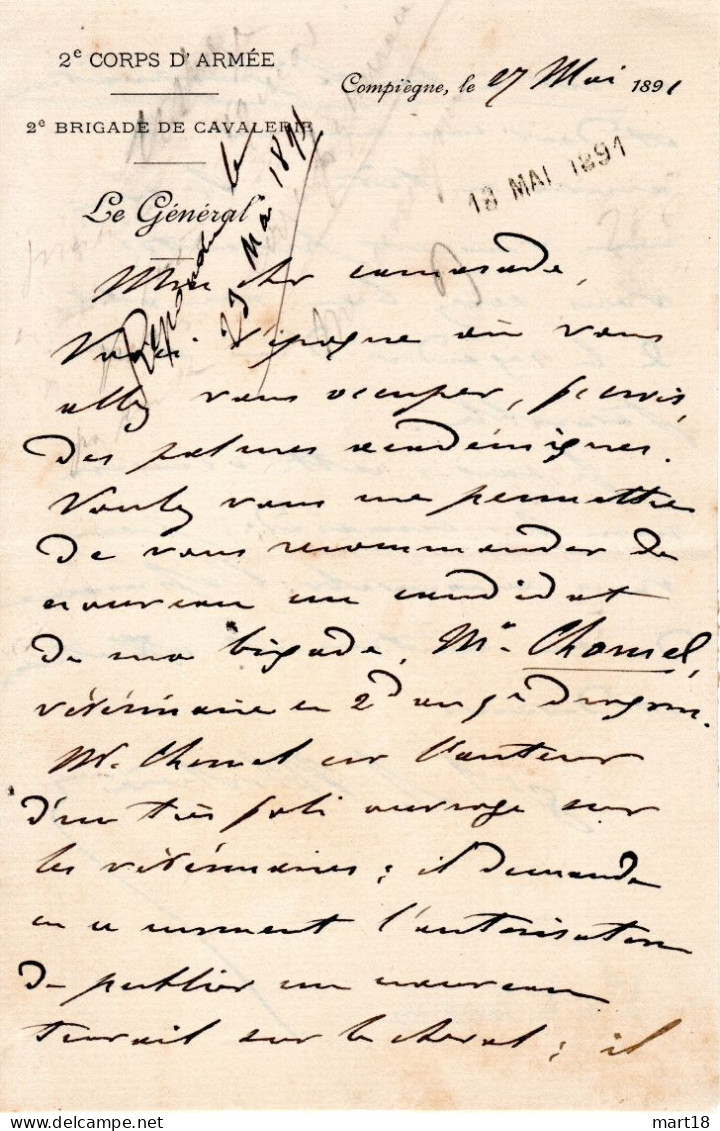 2e CORPS D'ARMÉE
2e BRIGADE DE CAVALERIE
Le Général
Compiègne, le 17 Mai 1891
18 MAI 1891
Répondu le
29 Mai 1891
Mon cher camarade,
Voici l'époque où vous
allez vous occuper, je crois,
des palmes académiques.
Voulez vous me permettre
de vous recommander de
nouveau un candidat
de ma brigade, Mr Chomel,
vétérinaire en 2d au 5e Dragons.
Mr. Chomel est l'auteur
d'un très joli ouvrage sur
les vétérinaires ; il demande
en ce moment l'autorisation
de publier un nouveau
travail sur le cheval ; il
delcampe.net
mart18